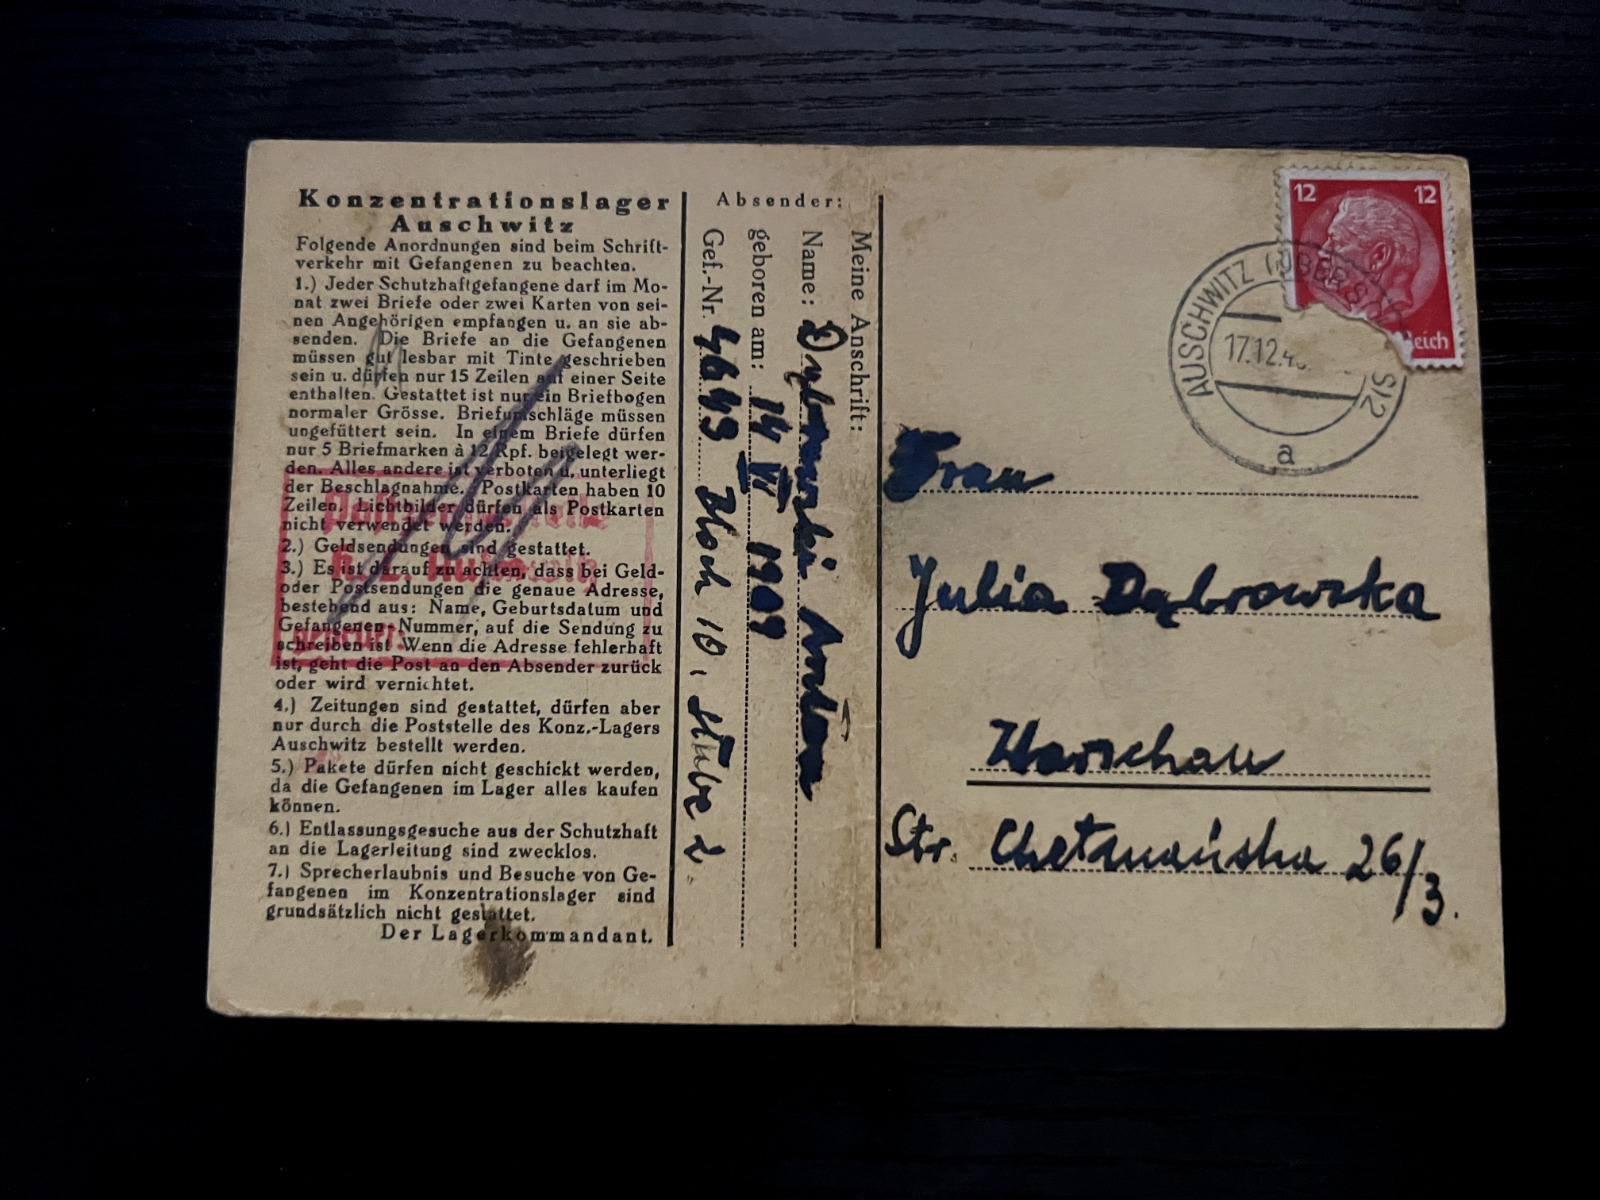 Konzentrationslager
Auschwitz
Folgende Anordnungen sind beim Schrift-
verkehr mit Gefangenen zu beachten.
1.) Jeder Schutzhaftgefangene darf im Mo-
nat zwei Briefe oder zwei Karten von sei-
nen Angehörigen empfangen u. an sie ab-
senden. Die Briefe an die Gefangenen
müssen gut lesbar mit Tinte geschrieben
sein u. dürfen nur 15 Zeilen auf einer Seite
enthalten. Gestattet ist nur ein Briefbogen
normaler Grösse. Briefumschläge müssen
ungefüttert sein. In einem Briefe dürfen
nur 5 Briefmarken à 12 Rpf. beigelegt wer-
den. Alles andere ist verboten u. unterliegt
der Beschlagnahme. Postkarten haben 10
Zeilen. Lichtbilder dürfen als Postkarten
nicht verwendet werden.
2.) Geldsendungen sind gestattet.
3.) Es ist darauf zu achten, dass bei Geld-
oder Postsendungen die genaue Adresse,
bestehend aus: Name, Geburtsdatum und
Gefangenen-Nummer, auf die Sendung zu
schreiben ist. Wenn die Adresse fehlerhaft
ist, geht die Post an den Absender zurück
oder wird vernichtet.
4.) Zeitungen sind gestattet, dürfen aber
nur durch die Poststelle des Konz.-Lagers
Auschwitz bestellt werden.
5.) Pakete dürfen nicht geschickt werden,
da die Gefangenen im Lager alles kaufen
können.
6.) Entlassungsgesuche aus der Schutzhaft
an die Lagerleitung sind zwecklos.
7.) Sprecherlaubnis und Besuche von Ge-
fangenen im Konzentrationslager sind
grundsätzlich nicht gestattet.
Der Lagerkommandant.
K.L. Auschwitz
geprüft:
Absender:
Meine Anschrift:
Name: Anton
geboren am: 14 VI 1909
Gef.-Nr. 4649 Block 10, Stube 2.
12 12
Reich
AUSCHWITZ (OBERSCHLES) 2
17.12.40
a
Frau
Julia Dąbrowska
Warschau
Str. 26/3.